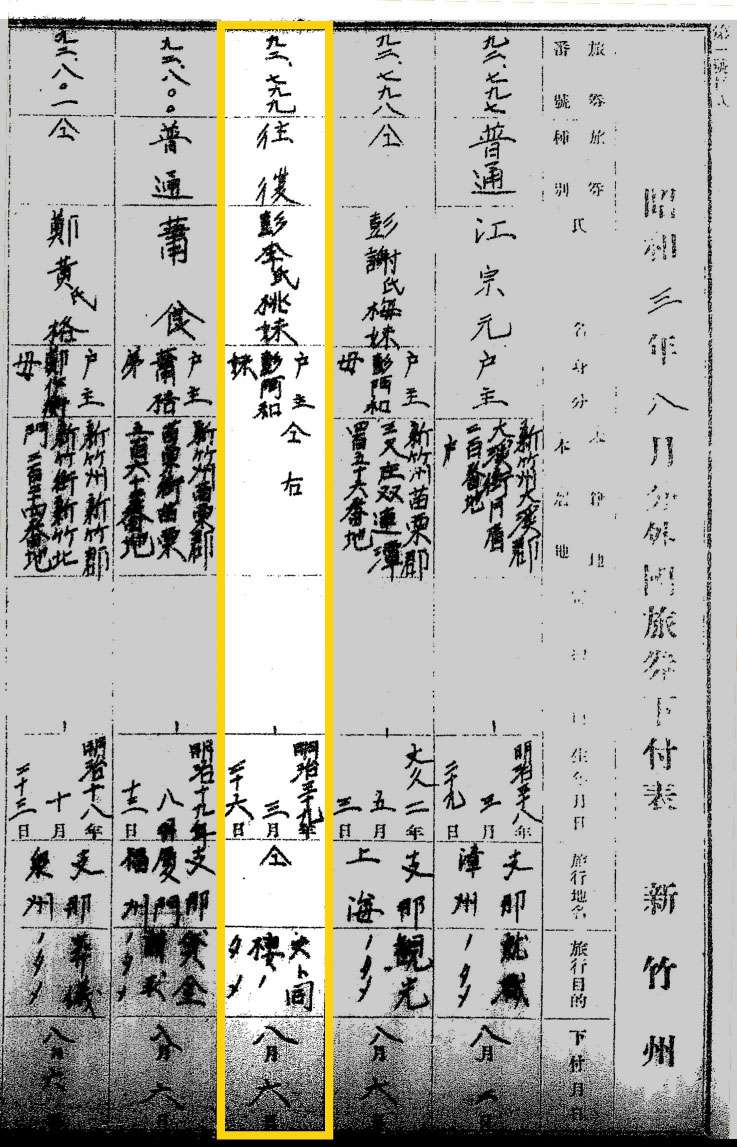 昭和三年八月分外國旅券下付表 新竹州
旅券番號
旅券種別
氏名
身分
本籍地
生年月日
旅行地名
旅行目的
下付月日
九二、七九七
普通
江宗元
戶主
新竹州大溪郡
大溪街
二百番地
明治三十八年
二十九日
支那
漳州
就職
ノタメ
八月
九二、七九八
仝
彭謝氏梅妹
戶主
彭阿和
母
新竹州苗栗郡
三叉庄双連潭
四百五十六番地
二年
五月
三日
支那
上海
觀光
ノタメ
八月六日
九二、七九九
往復
彭李氏桃妹
戶主
彭阿和
妹
仝右
明治三十九年
三月
二十六日
仝
夫ト同
棲ノ
タメ
八月六日
九二、八〇〇
普通
蕭
戶主
蕭
弟
新竹州苗栗郡
苗栗街苗栗
明治十九年
八月
十三日
支那
廈門
福州
ノタメ
八月六日
九二、八〇一
仝
鄭黃氏格
戶主
母
新竹州新竹郡
新竹街新竹北
門二百十四番地
明治十八年
十月
二十三日
支那
泉州
葬儀
ノタメ
八月六日